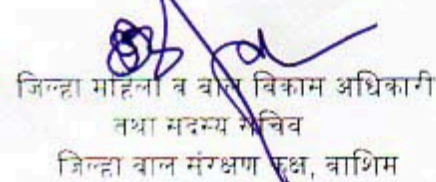 जिल्हा महिला व बाल विकास अधिकारी
तथा सदस्य सचिव
जिल्हा बाल संरक्षण कक्ष, वाशिम